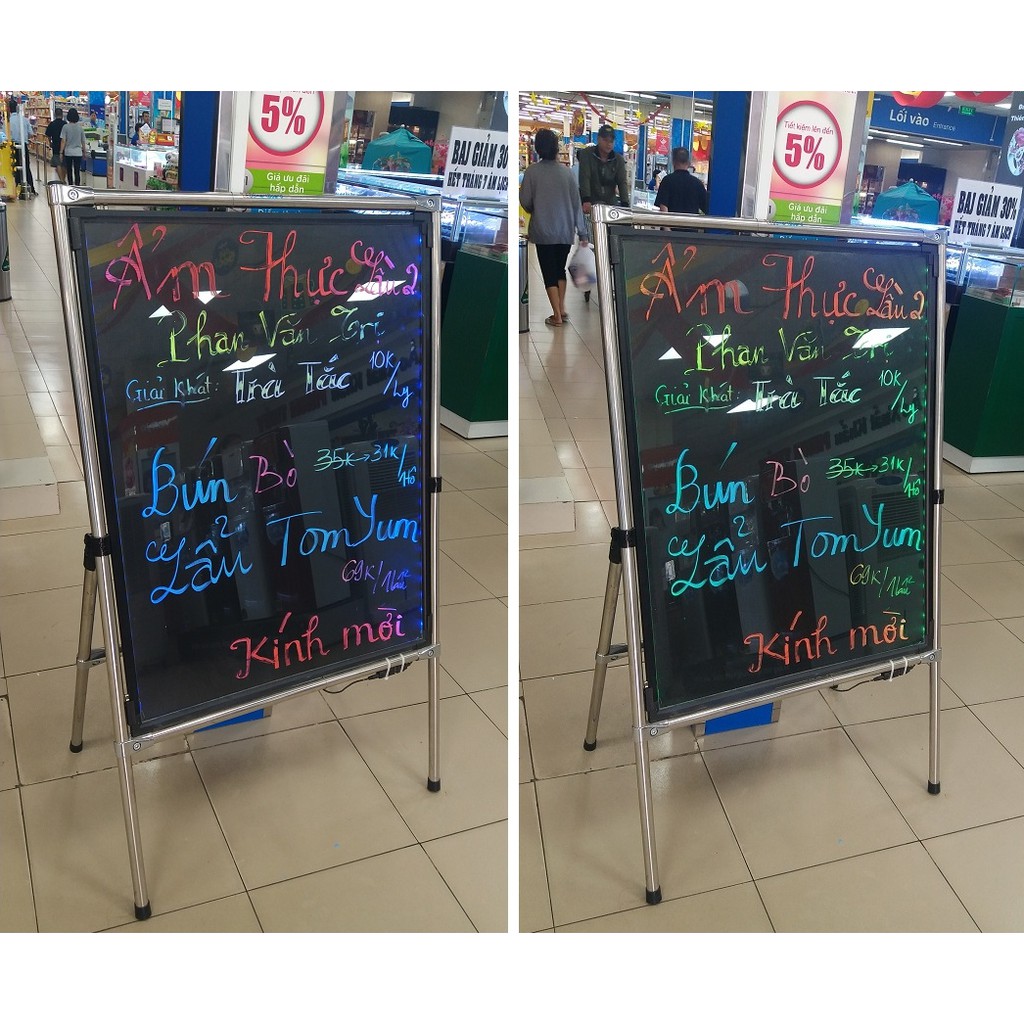 5%
Giá ưu đãi
hấp dẫn
BAI GIẢM 30
HẾT THANG 7 ÂN LỊCH
Ẩm Thực Lầu 2
Phan Văn Trị
Giải Khát: Trà Tắc 10K/Ly
Bún Bò 35K→31K/Tô
Lẩu Tom Yum
69K/1Lẩu
Kính mời
Lối vào Entrance
Tiết kiệm lên đến
5%
Giá ưu đãi
hấp dẫn
BAI GIẢM 30%
HẾT THANG 7 ÂN LỊCH
Ẩm Thực Lầu 2
Phan Văn Trị
Giải Khát: Trà Tắc 10K/Ly
Bún Bò 35K→31K/Tô
Lẩu Tom Yum
69K/1Lẩu
Kính mời